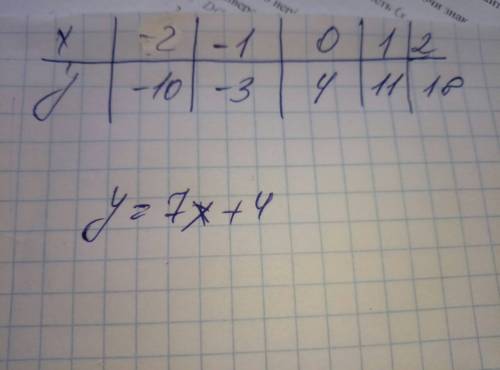 x -2 -1 0 1 2
y -10 -3 4 11 18
y = 7x + 4